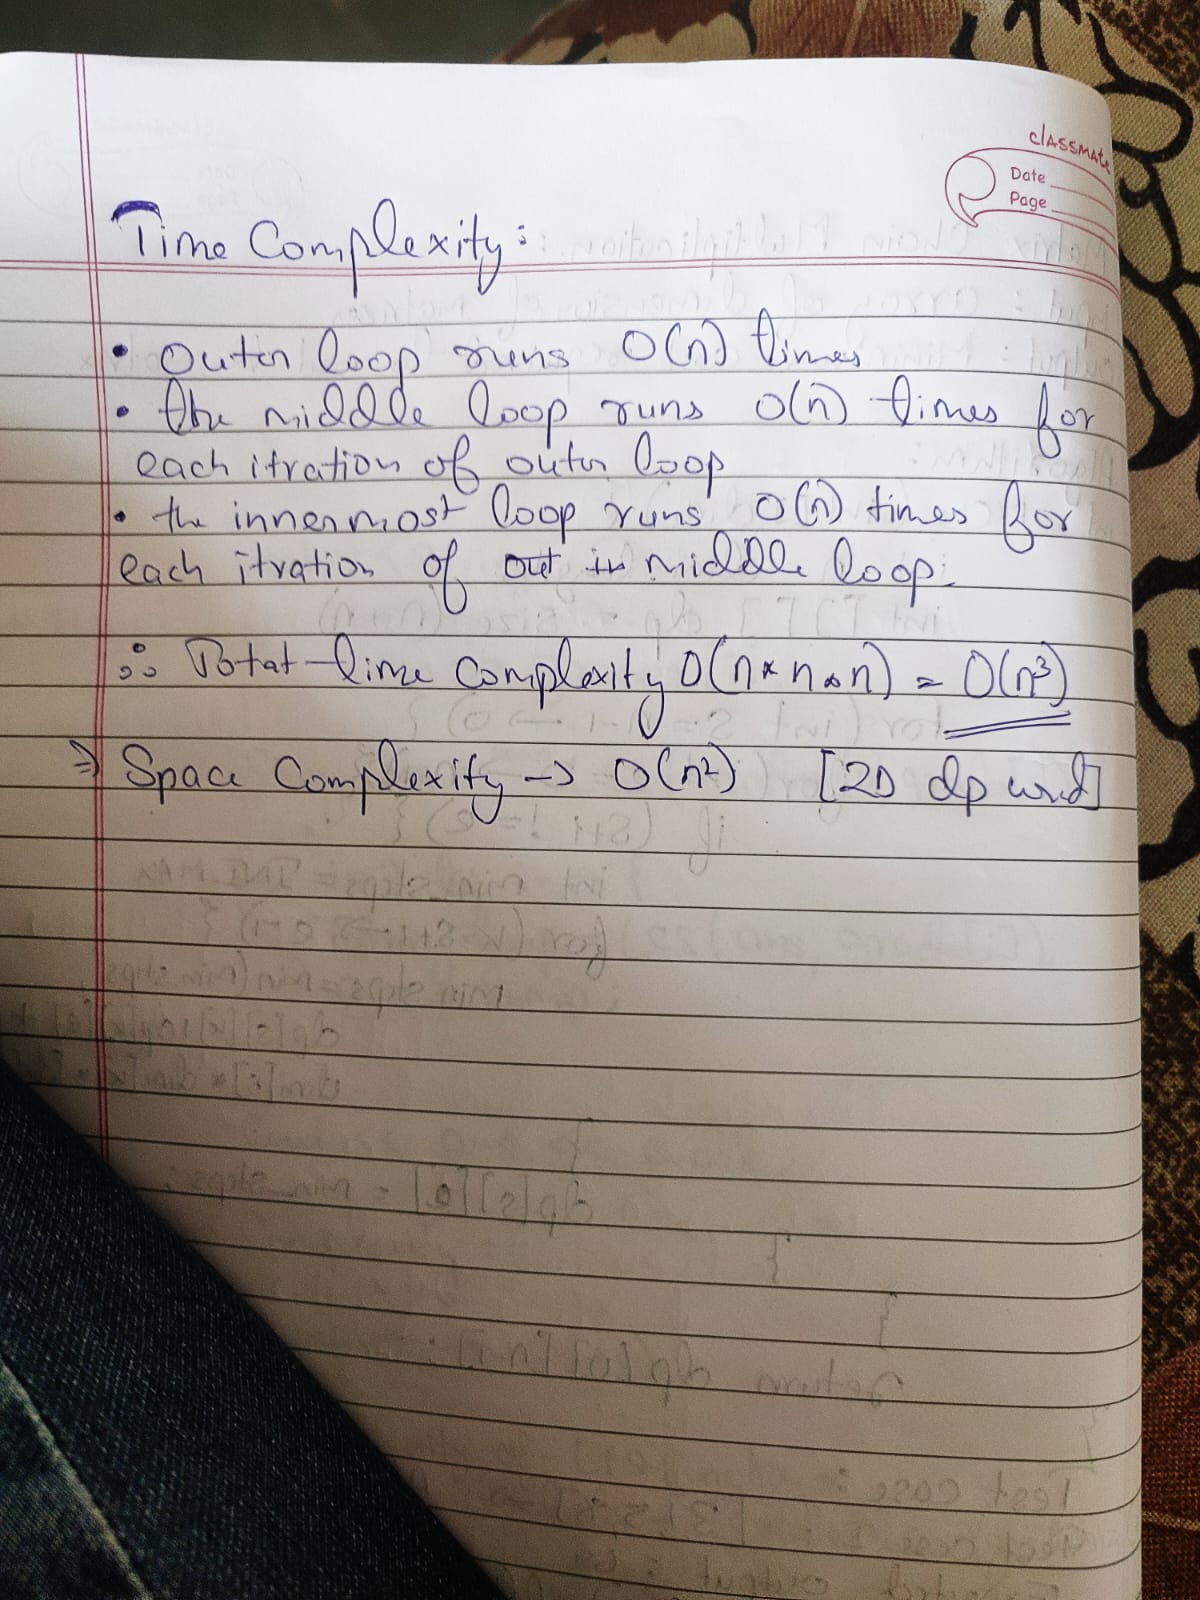 classmate
Date
Page
Time Complexity:
• Outer loop runs O(n) times
• the middle loop runs O(n) times for
each itration of outer loop
• the innermost loop runs O(n) times for
each itration of out in middle loop.
∴ Total time complexity O(n*n*n) = O(n³)
⇒ Space Complexity -> O(n²) [2D dp used]